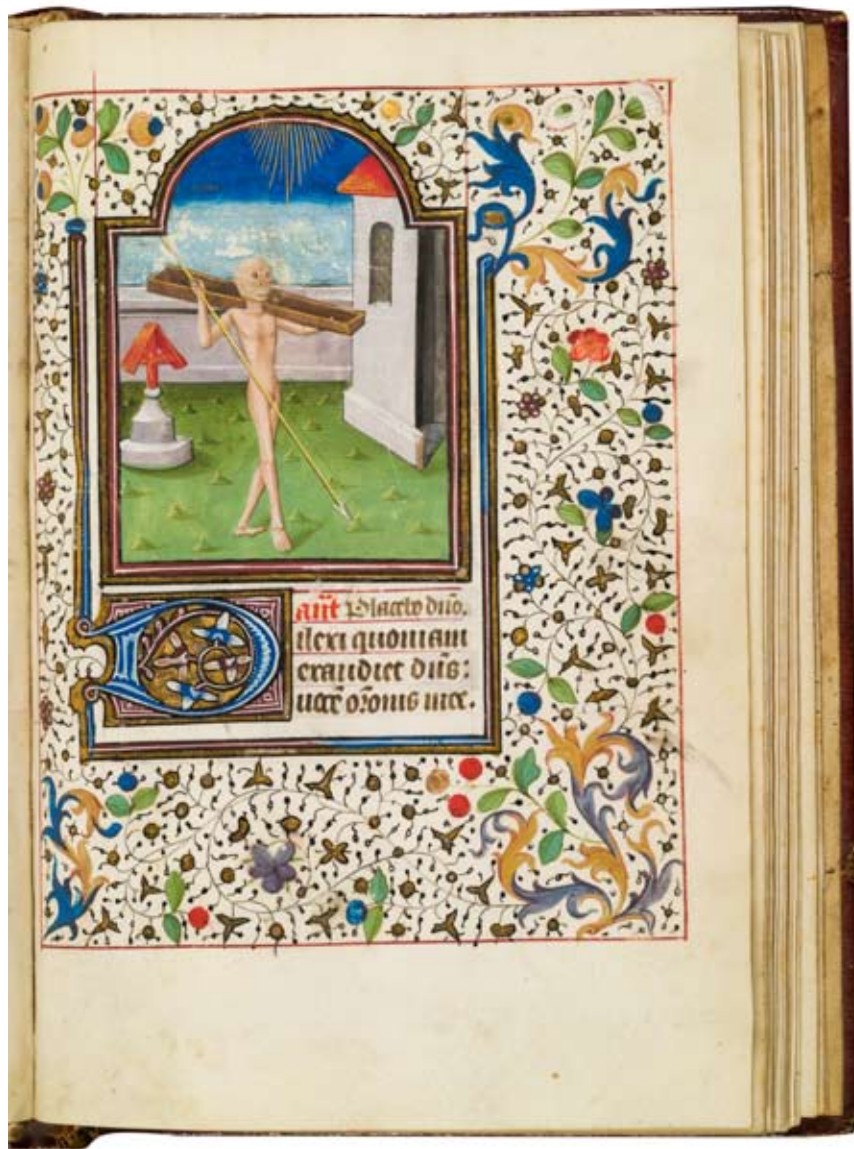 añt Placebo dño.
Dilexi quoniam
exaudiet dñs:
uocē orōnis mee.